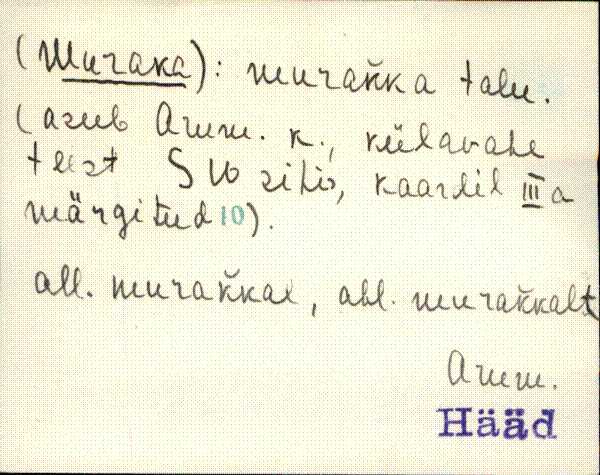 (Muraka): murak̆ka talu.
(asub Arum. k., külavahe
teest SW sihis, kaardil III a
märgitud 10).
all. murak̆kal, abl. murak̆kalt
Arum.
Hääd